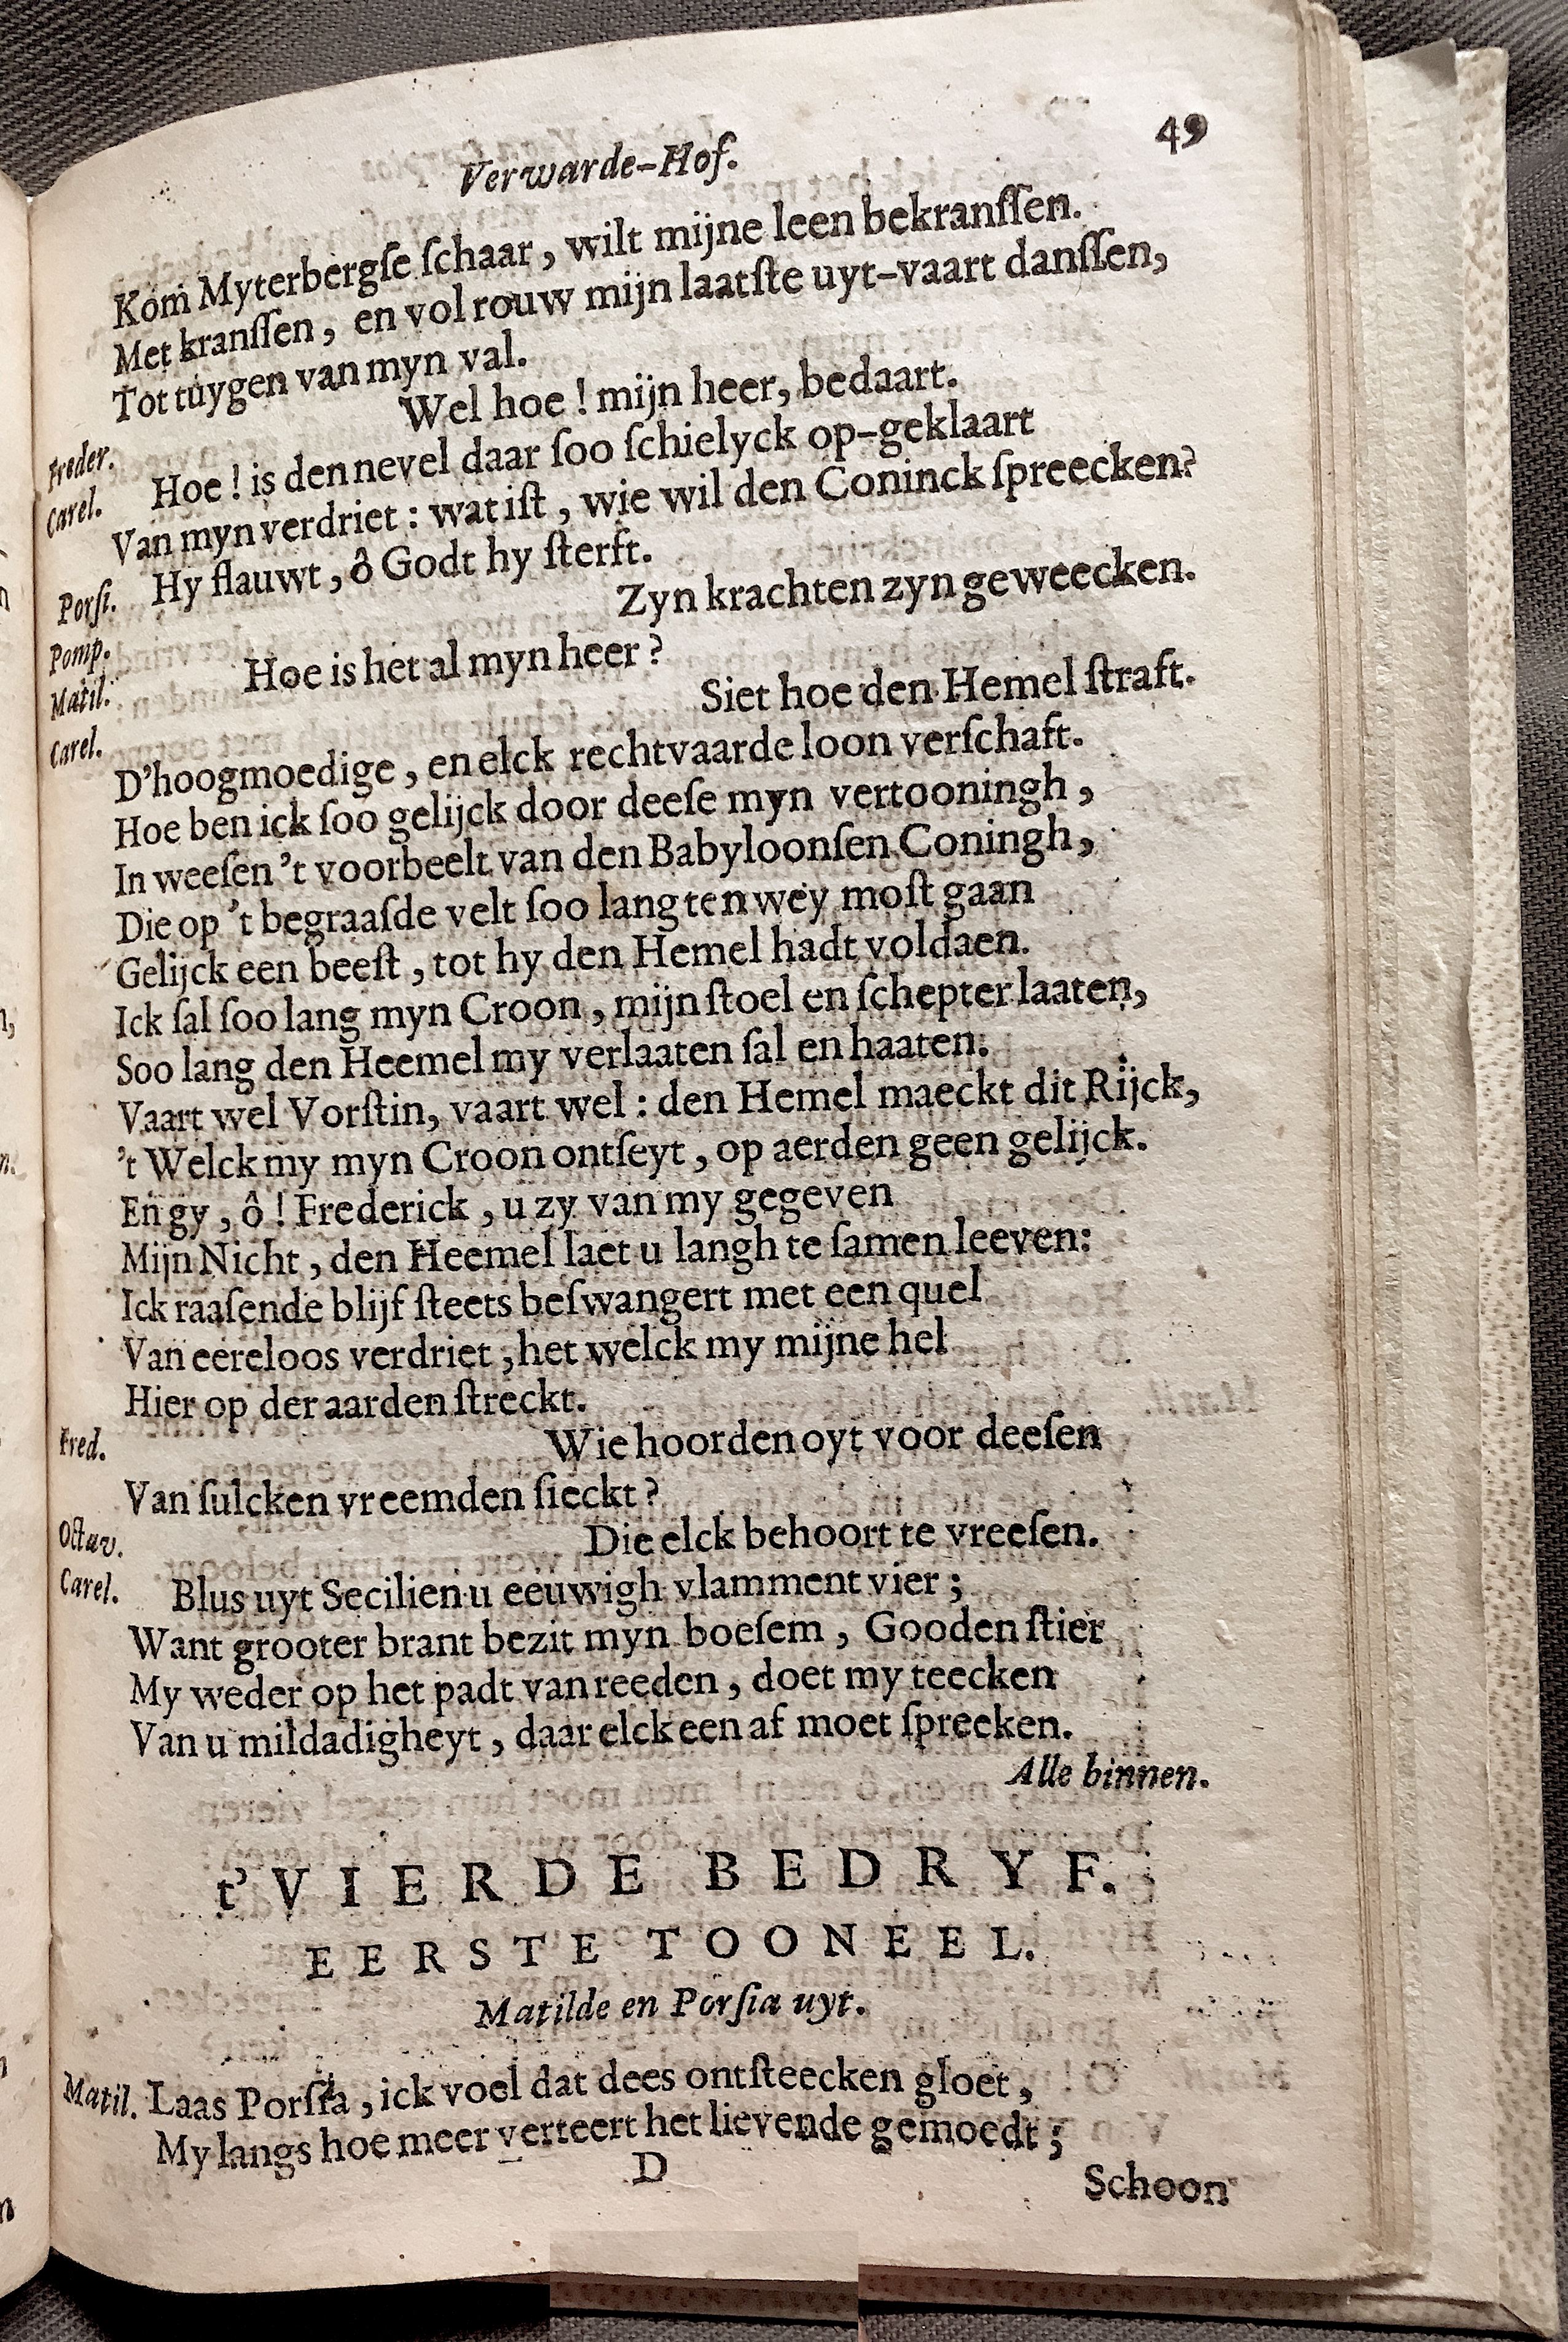 Verwarde-Hof. 49
Kom Myterbergſe ſchaar, wilt mijne leen bekranſſen.
Met kranſſen, en vol rouw mijn laatſte uyt-vaart danſſen,
Tot tuygen van myn val.
Freder. Wel hoe! mijn heer, bedaart.
Carel. Hoe! is den nevel daar ſoo ſchielyck op-geklaart
Van myn verdriet: wat iſt, wie wil den Coninck ſpreecken?
Porſi. Hy flauwt, ô Godt hy ſterft.
Pomp. Zyn krachten zyn geweecken.
Matil. Hoe is het al myn heer?
Carel. Siet hoe den Hemel ſtraft.
D'hoogmoedige, en elck rechtvaarde loon verſchaft.
Hoe ben ick ſoo gelijck door deeſe myn vertooningh,
In weeſen 't voorbeelt van den Babyloonſen Coningh,
Die op 't begraaſde velt ſoo lang ten wey moſt gaan
Gelijck een beeſt, tot hy den Hemel hadt voldaen.
Ick ſal ſoo lang myn Croon, mijn ſtoel en ſchepter laaten,
Soo lang den Heemel my verlaaten ſal en haaten.
Vaart wel Vorſtin, vaart wel: den Hemel maeckt dit Rijck,
't Welck my myn Croon ontſeyt, op aerden geen gelijck.
En gy, ô! Frederick, u zy van my gegeven
Mijn Nicht, den Heemel laet u langh te ſamen leeven:
Ick raaſende blijf ſteets beſwangert met een quel
Van eereloos verdriet, het welck my mijne hel
Hier op der aarden ſtreckt.
Fred. Wie hoorden oyt voor deeſen
Van ſulcken vreemden ſieckt?
Octav. Die elck behoort te vreeſen.
Carel. Blus uyt Secilien u eeuwigh vlamment vier;
Want grooter brant bezit myn boeſem, Gooden ſtier
My weder op het padt van reeden, doet my teecken
Van u mildadigheyt, daar elck een af moet ſpreeken.
Alle binnen.
t' VIERDE BEDRYF.
EERSTE TOONEEL.
Matilde en Porſia uyt.
Matil. Laas Porſia, ick voel dat dees ontſteecken gloet,
My langs hoe meer verteert het lievende gemoedt;
D
Schoon